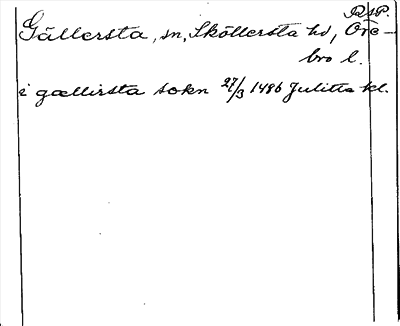 R.s.P.
Gällersta, sn, Sköllersta hd, Öre-
bro l.
i gællirsta sokn 27/3 1486 Julitta kl.